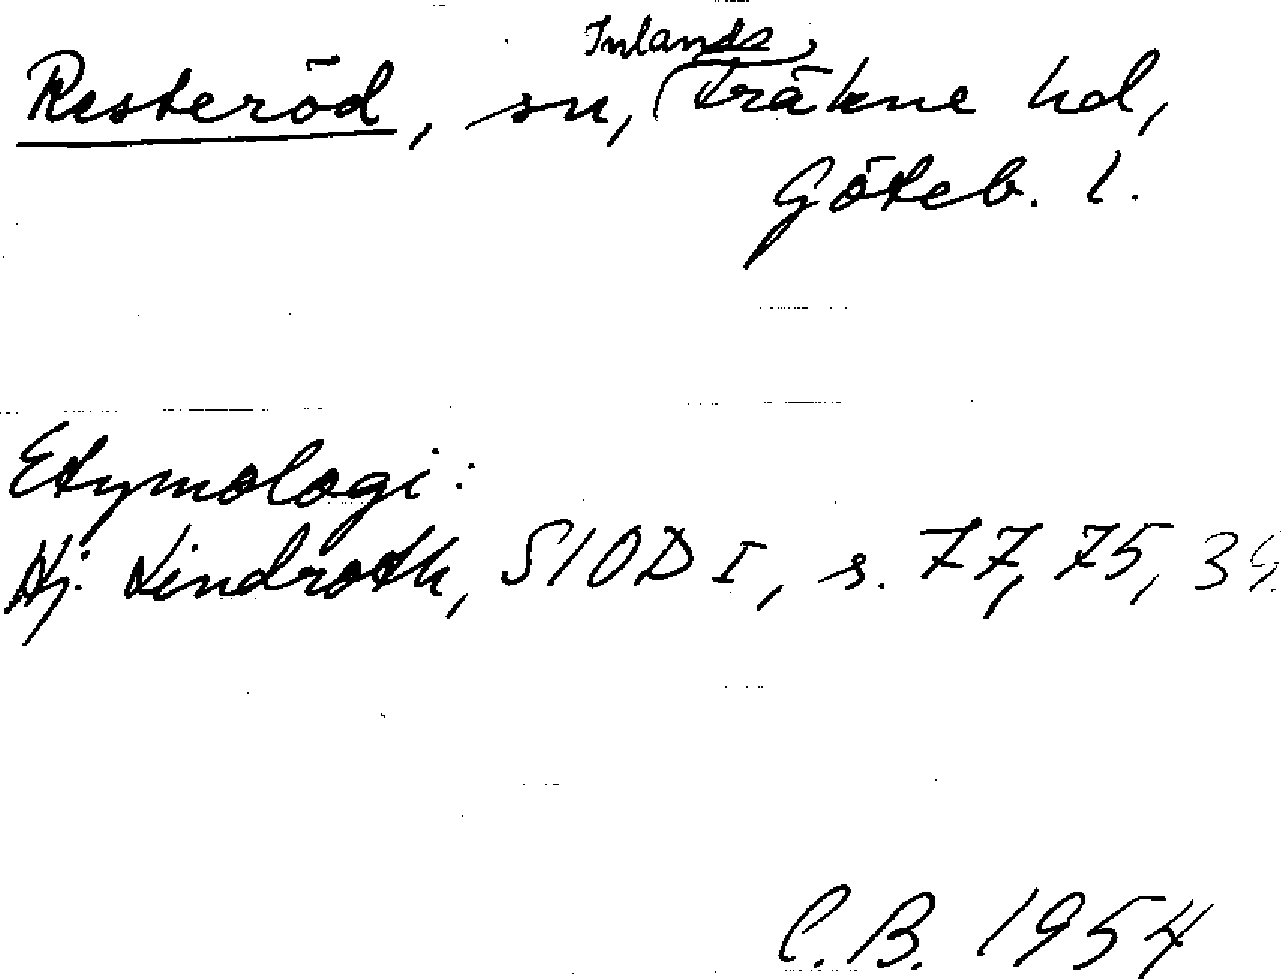 Resteröd, sn, Inlands Fräkne hd,
Göteb. l.
Etymologi:
Hj. Lindroth, SIOD I, s. 77, 75, 39
C.B. 1954